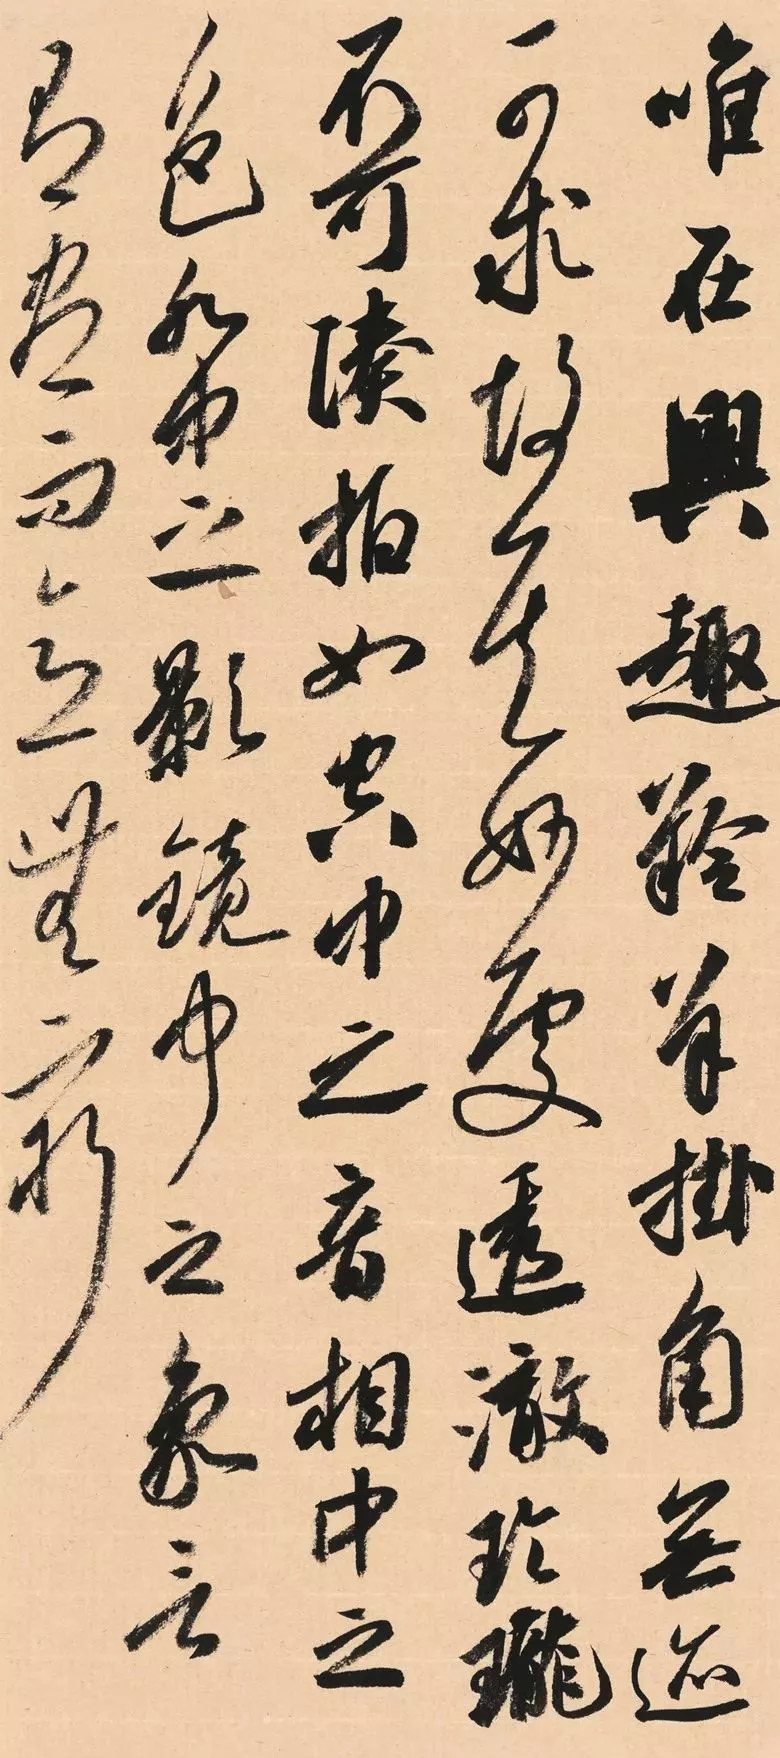 唯在興趣羚羊掛角無迹
可求故其妙處透澈玲瓏
不可湊拍如空中之音相中之
色水中之影鏡中之象言
有盡而意無窮